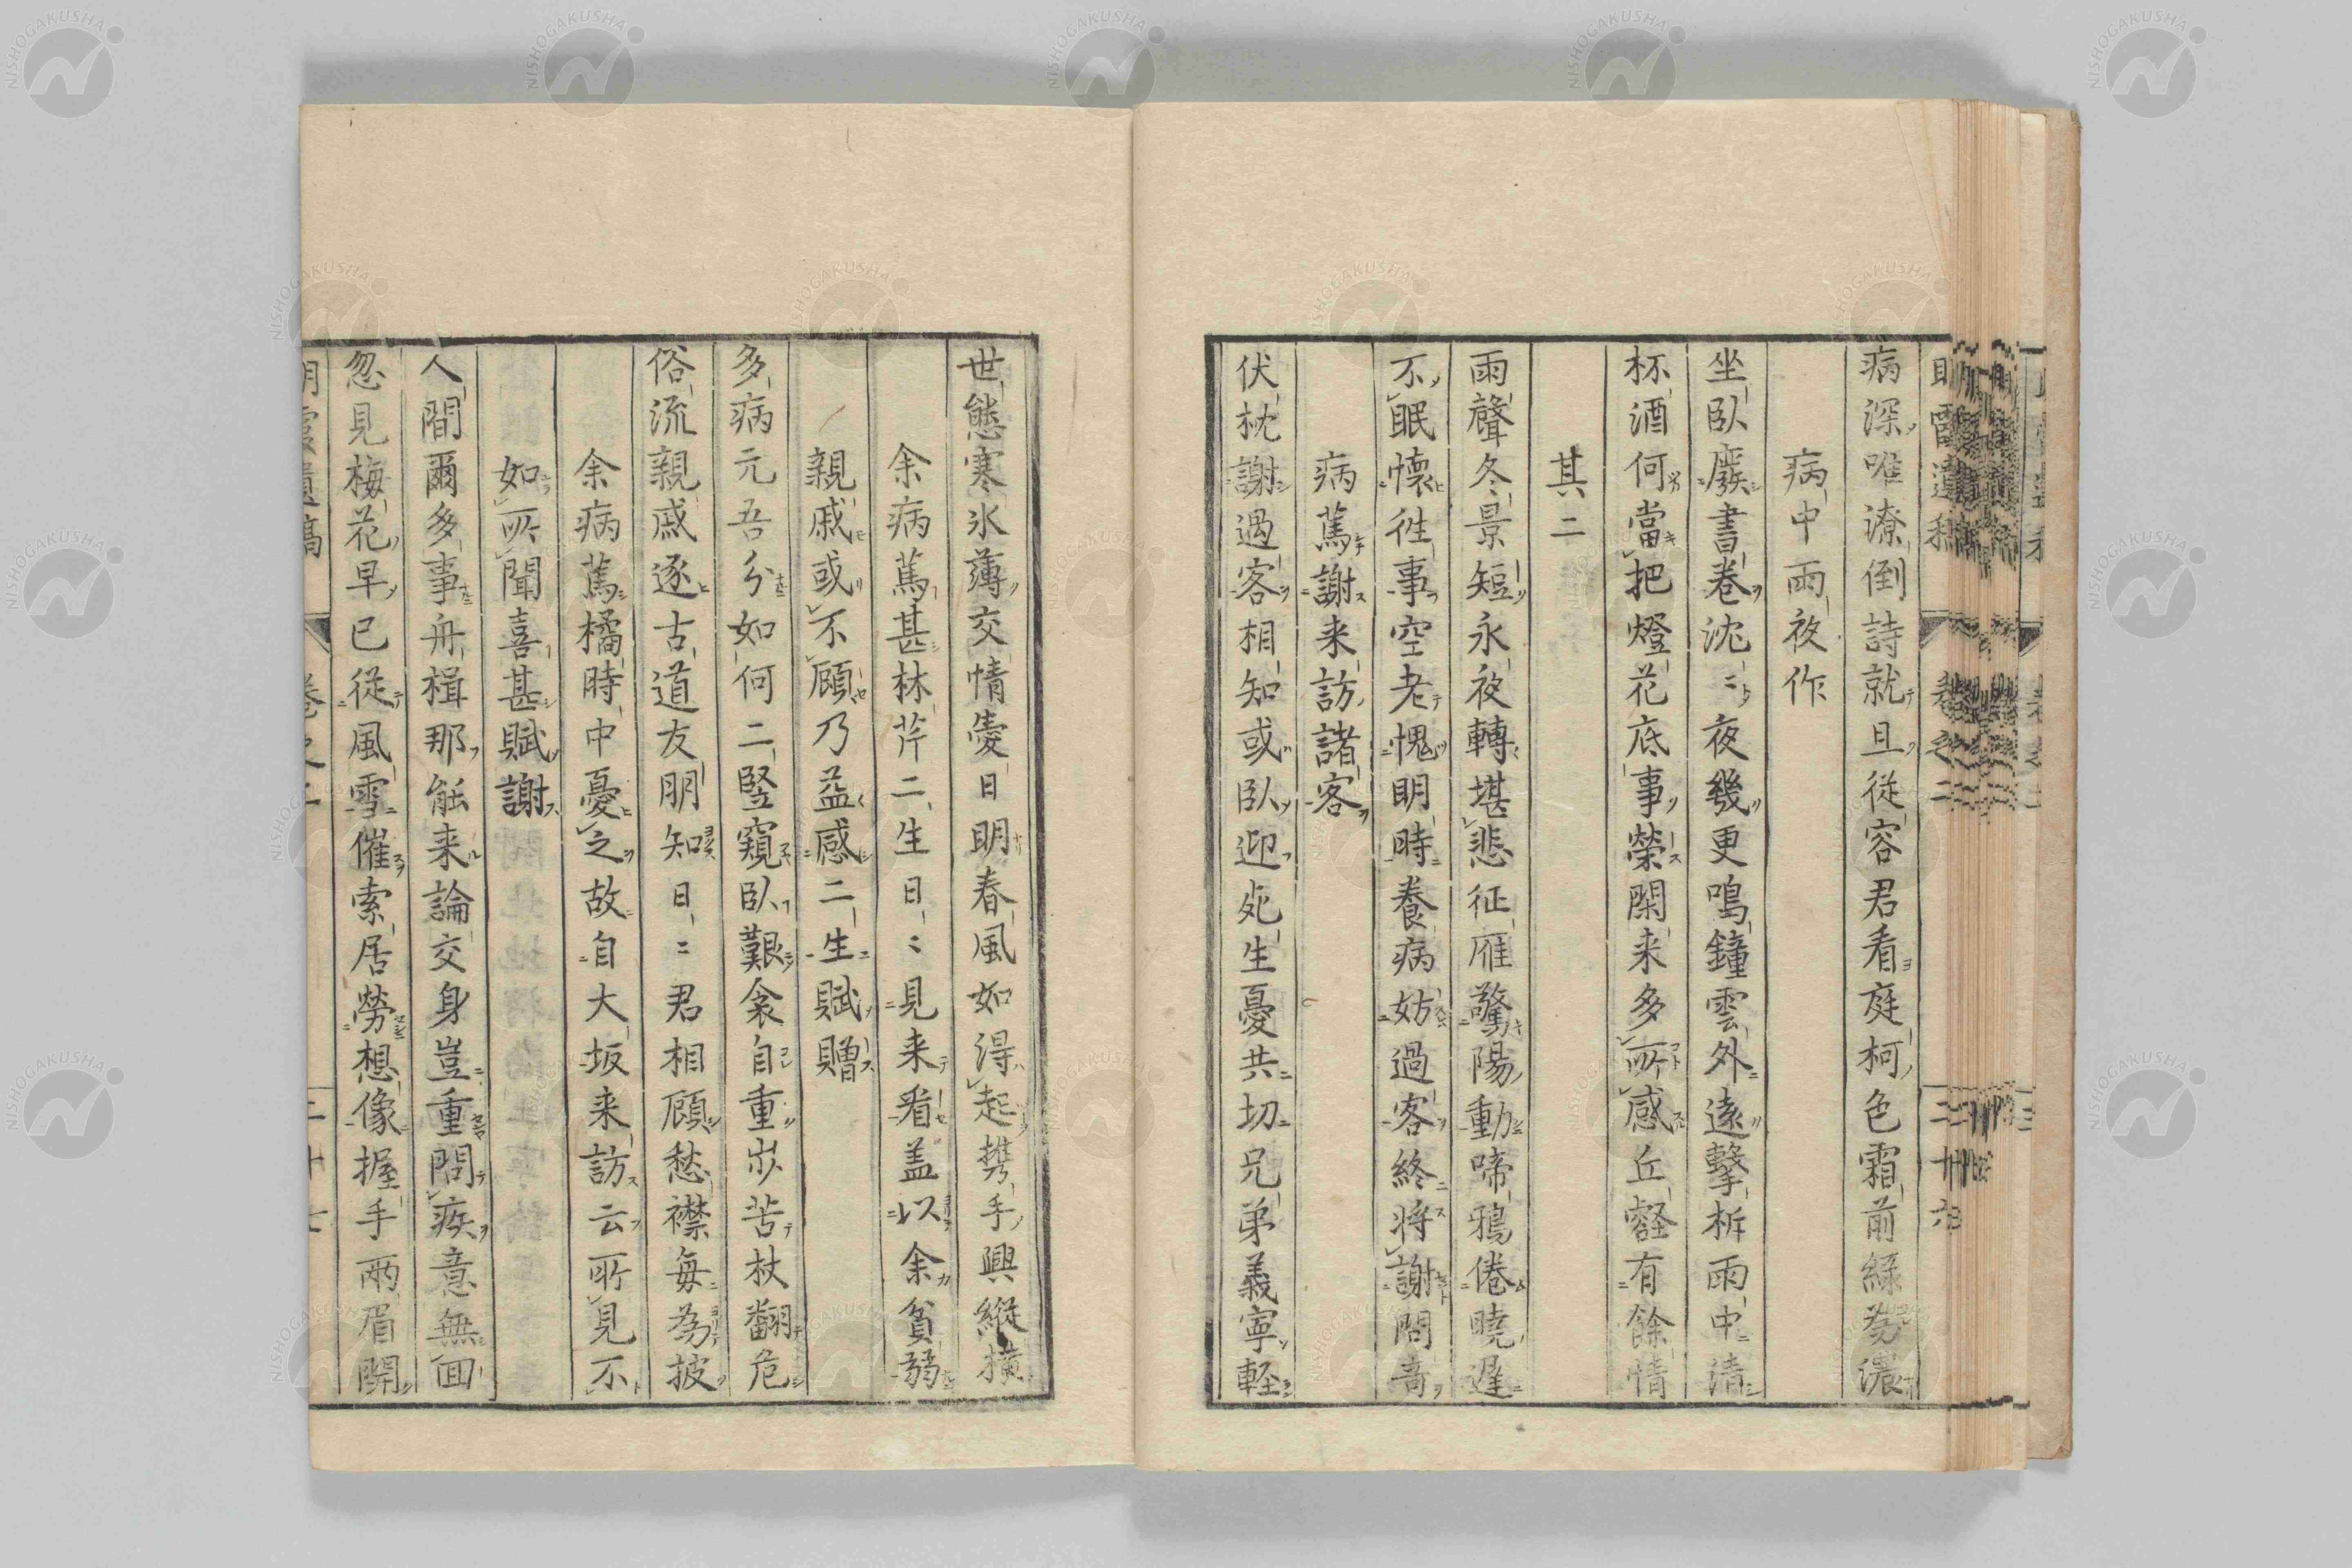 病深唯潦倒詩就且従容君看庭柯色霜前緑為濃
病中雨夜作
坐臥廢書巻沈〻夜幾更鳴鐘雲外遠擊柝雨中清
杯酒何當把燈花底事榮閑来多所感丘壑有餘情
其二
雨聲冬景短永夜轉堪悲征雁驚陽動啼鴉倦曉遲
不眠懐徃事空老愧明時養病妨過客終将謝問竒
病篤謝来訪諸客
伏枕謝過客相知或臥迎死生憂共切兄弟義寧軽
世態寒氷薄交情愛日明春風如得起携手興縦横
余病篤甚林芹二生日〻見来看盖以余貧弱
親戚或不顧乃益感二生賦贈
多病元吾分如何二竪窺臥艱衾自重歩苦杖翻危
俗流親戚逐古道友朋知日〻君相顧愁襟毎為披
余病篤橘時中憂之故自大坂来訪云所見不
如所聞喜甚賦謝
人間爾多事舟楫那能来論交身豈重問疾意無回
忽見梅花早已従風雪催索居勞想像握手両眉開